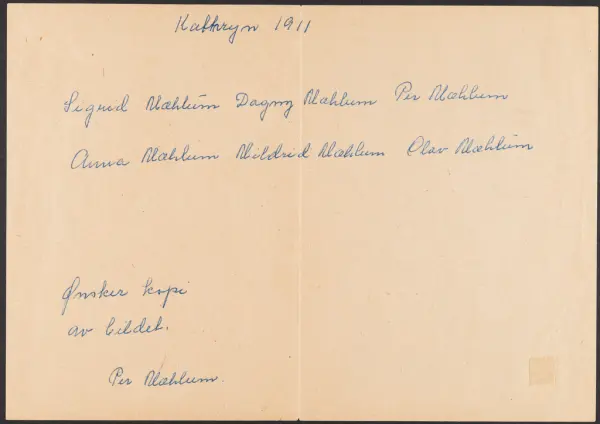 Kathryn 1911
Sigrid Mæhlum Dagny Mæhlum Per Mæhlum
Anna Mæhlum Mildrid Mæhlum Olav Mæhlum
Ønsker kopi
av bildet.
Per Mæhlum.